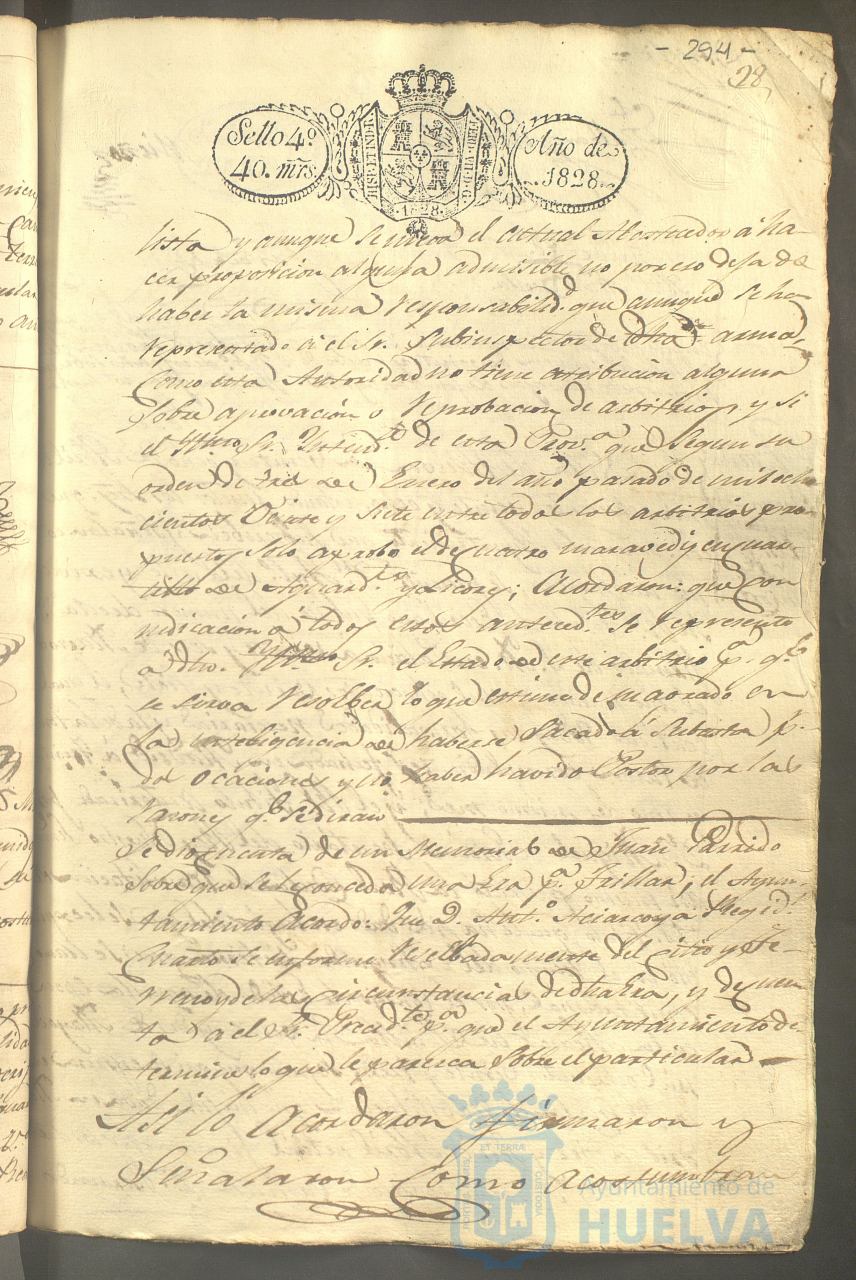 - 294 -
28
Sello 4º
40. mrs.
HISP. ET IND. R
FERD. VII. D. G.
1828.
Año de
1828.
lista y aunque se mueva el actual Abastecedor á ha-
cer proposicion alguna admisible no por eso deja de
haber la misma responsabilid.d que aunque se ha
representado á el Sr. Subinspector de dha arma,
como esta Autoridad no tiene atribucion alguna
sobre aprovación o reprobacion de arbitrios, y si
el Yltmo Sr. Yntend.te de esta Prov.a que segun su
orden de tres de Enero del año pasado de mil ocho
cientos Veinte y siete entre todos los arbitrios pro
puestos solo aprobo el de cuatro maravedis en cuar-
tillo de Aguard.te y Licores; Acordaron: que con
yndicación á todos estos anteced.tes se represente
a dho. Yltmo Sr. el Estado de este arbitrio p.a q.e
se sirva resolber lo que estime de su agrado en
la inteligencia de haberse sacado á Subasta p.r
dos ocaciones y no haber havido Postor por las
razones q.e se diran
Se dio cuenta de un Memorial de Juan Garrido
sobre que se le conceda una Era p.a trillar; el Ayun-
tamiento Acordo: Que D. Ant.o Aciarcoya Regid.r
Cuarto se informe reserbadamente del citio y te-
rreno y de las circunstancias de dha Era, y de cuen
ta á el Sr. Presid.te p.a que el Ayuntamiento de-
termine lo que le paresca sobre el particular
Asi lo acordaron firmaron y
Señalaron como acostumbran
ET TERRAE
CUSTODIA
Ayuntamiento de
HUELVA